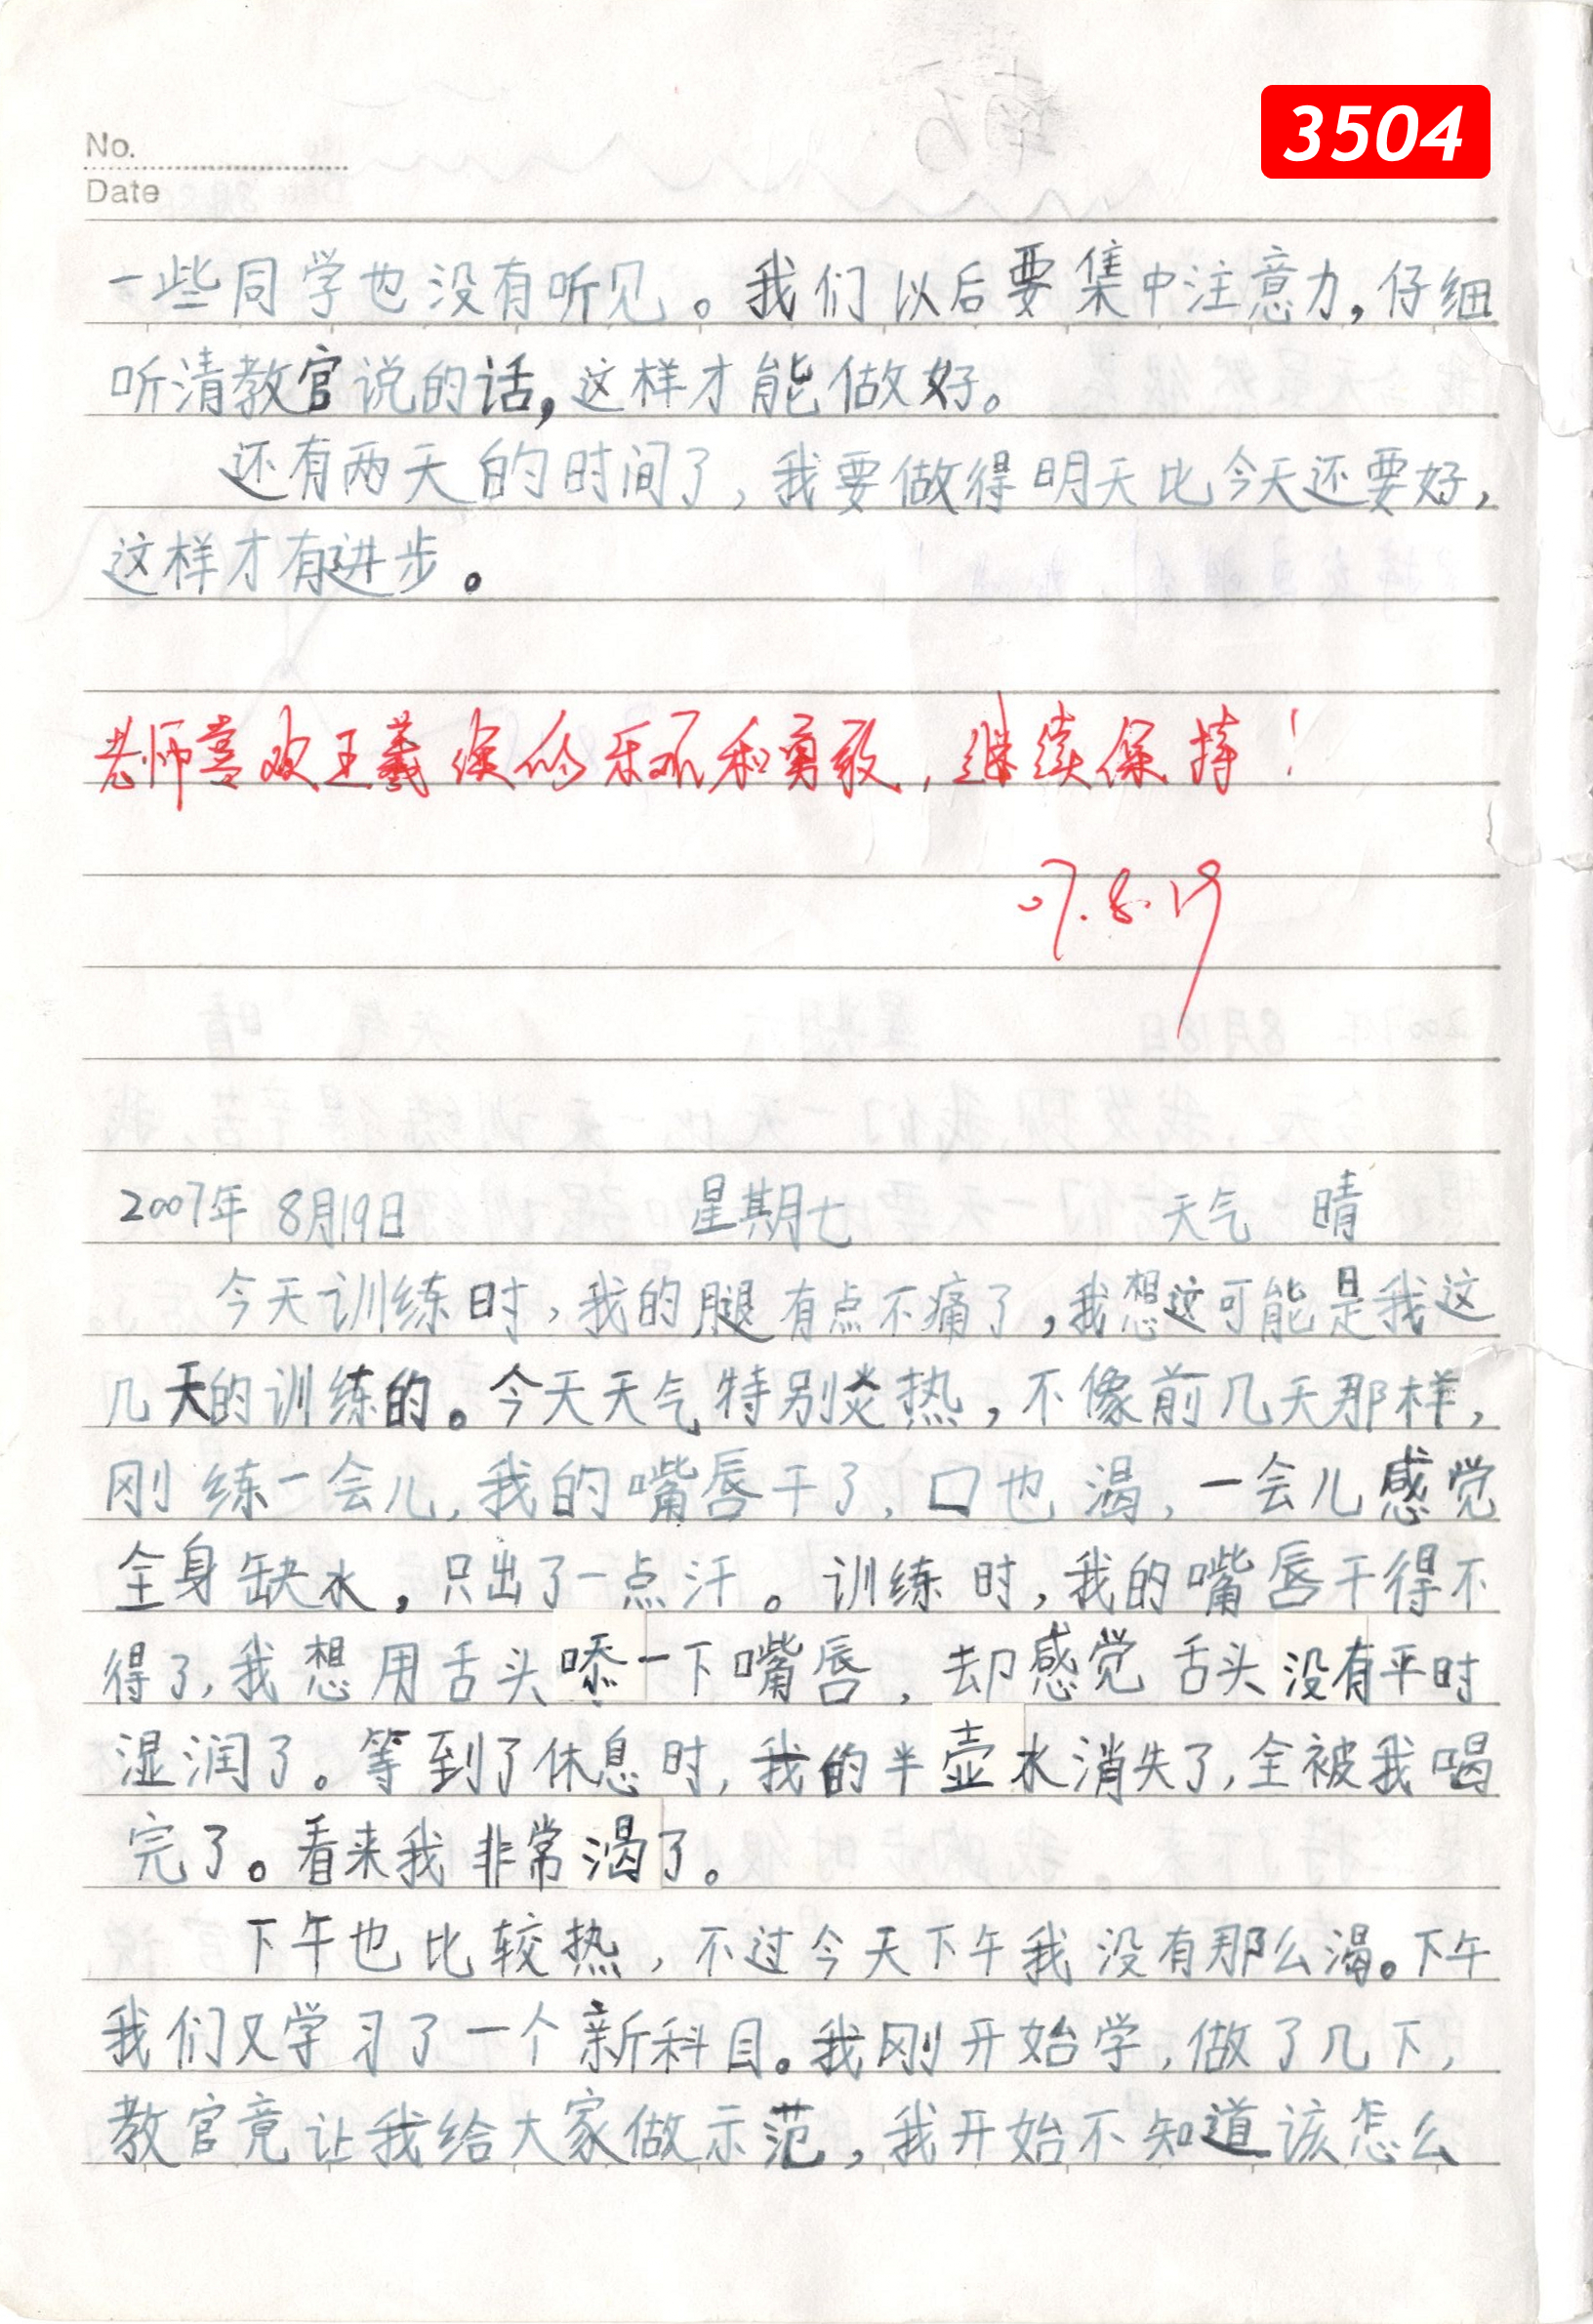 3504
No.
Date
一些同学也没有听见。我们以后要集中注意力，仔细
听清教官说的话，这样才能做好。
还有两天的时间了，我要做得明天比今天还要好，
这样才有进步。
老师喜欢王羲俊的乐观和勇敢，继续保持！
07.8.19
2007年 8月19日 星期七 天气 晴
今天训练时，我的腿有点不痛了，我想这可能是我这
几天的训练的。今天天气特别炎热，不像前几天那样，
刚练一会儿，我的嘴唇干了，口也渴，一会儿感觉
全身缺水，只出了一点汗。训练时，我的嘴唇干得不
得了，我想用舌头舔一下嘴唇，却感觉舌头没有平时
湿润了。等到了休息时，我的半壶水消失了，全被我喝
完了。看来我非常渴了。
下午也比较热，不过今天下午我没有那么渴。下午
我们又学习了一个新科目。我刚开始学，做了几下，
教官竟让我给大家做示范，我开始不知道该怎么